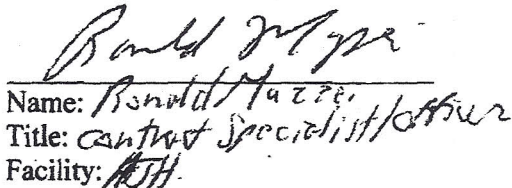 Ronald
Name: Ronald
Title: Contract Specialist/officer
Facility: ASH